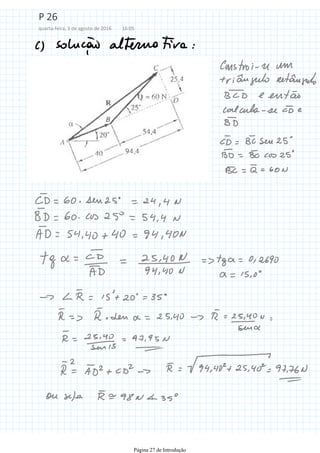 P 26
quarta-feira, 3 de agosto de 2016 16:05
c) solução alternativa:
Constroi-se um
triângulo retângulo
BCD e então
calcula-se CD e
BD
CD = BC sen 25°
BD = BC cos 25°
BC = Q = 60 N
C
25,4
Q = 60 N
D
R
25°
B
α
20°
54,4
A
40
94,4
CD = 60. sen 25° = 24,4 N
BD = 60. cos 25° = 54,4 N
AD = 54,40 + 40 = 94,40N
tg α = CD / AD = 25,40 N / 94,40 N => tg α = 0,2690
α = 15,0°
→ ∠R = 15° + 20° = 35°
R => R . sen α = 25,40 → R = 25,40 N / sen α =
R = 25,40 / sen 15 = 97,95 N
R² = AD² + CD² → R = √94,40² + 25,40² = 97,76 N
Ou seja R ≅ 98 N ∠ 35°
Página 27 de Introdução